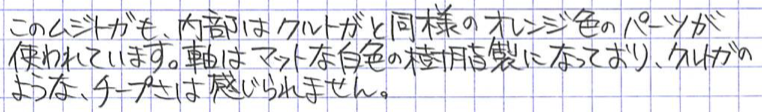 このムジトガも、内部はクルトガと同様のオレンジ色のパーツが
使われています。軸はマットな白色の樹脂製になっており、クルトガの
ような、チープさは感じられません。